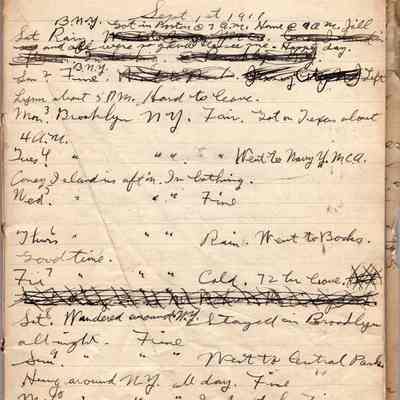 Sept 1st 191
B.N.Y. Got in Boston @ 7 A.M. Home @ 9 A.M. Jill
Sat Rain
and all were so glad to see me. Happy day.
B.N.Y.
Sun 2 Fine. Left
Lynn about 5 P.M. Hard to leave.
Mon. 3 Brooklyn N.Y. Fair. Got on Texas about
4 A.M.
Tues 4 " " " " Went to Navy Y.M.C.A.
Coney Island in aft'n. In bathing.
Wed. 5 " " " Fine
Thurs 6 " " " Rain. Went to Books.
Good time.
Fri 7 " " " Cold. 72 hr leave.
Sat. 8 Wandered around N.Y. Stayed in Brooklyn
all night. Fine
Sun 9. " " " Went to Central Park.
Hung around N.Y. all day. Fine "